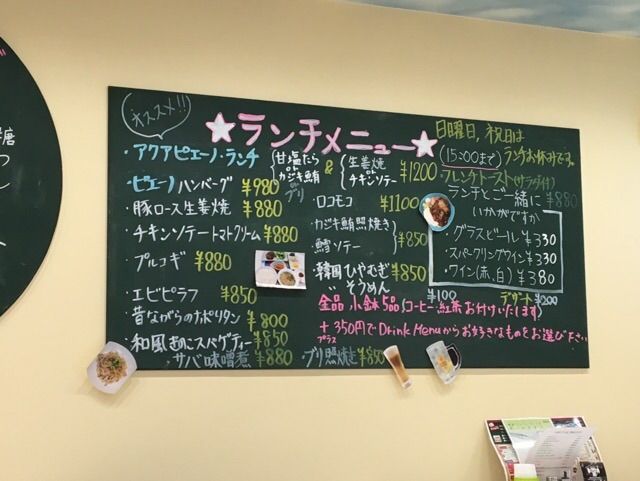 オススメ!!
★ランチメニュー★
日曜日,祝日は
(15:00まで) ランチお休みです。
・アクアピエーノ・ランチ {甘塩たら or カジキ鮪 or ブリ & {生姜焼 or チキンソテー ¥1200
・ピエーノハンバーグ ¥980
・豚ロース生姜焼 ¥880
・チキンソテートマトクリーム ¥880
・プルコギ ¥880
・エビピラフ ¥850
・昔ながらのナポリタン ¥800
・和風きのこスパゲティー ¥850
サバ味噌煮 ¥880
・ブリ照焼き ¥850
・ロコモコ ¥1100
・カジキ鮪照焼き
・鱈ソテー } ¥850
・韓国ひやむぎ ¥850
〃 そうめん
・フレンチトースト(サラダ付) ¥880
ランチとご一緒に
いかがですか
・グラスビール ¥330
・スパークリングワイン ¥330
・ワイン(赤、白) ¥380
¥100
デザート ¥200
全品 小鉢5品 (コーヒー、紅茶お付けいたします)
+350円でDrink Menuからお好きなものをお選び下さい
プラス
唐